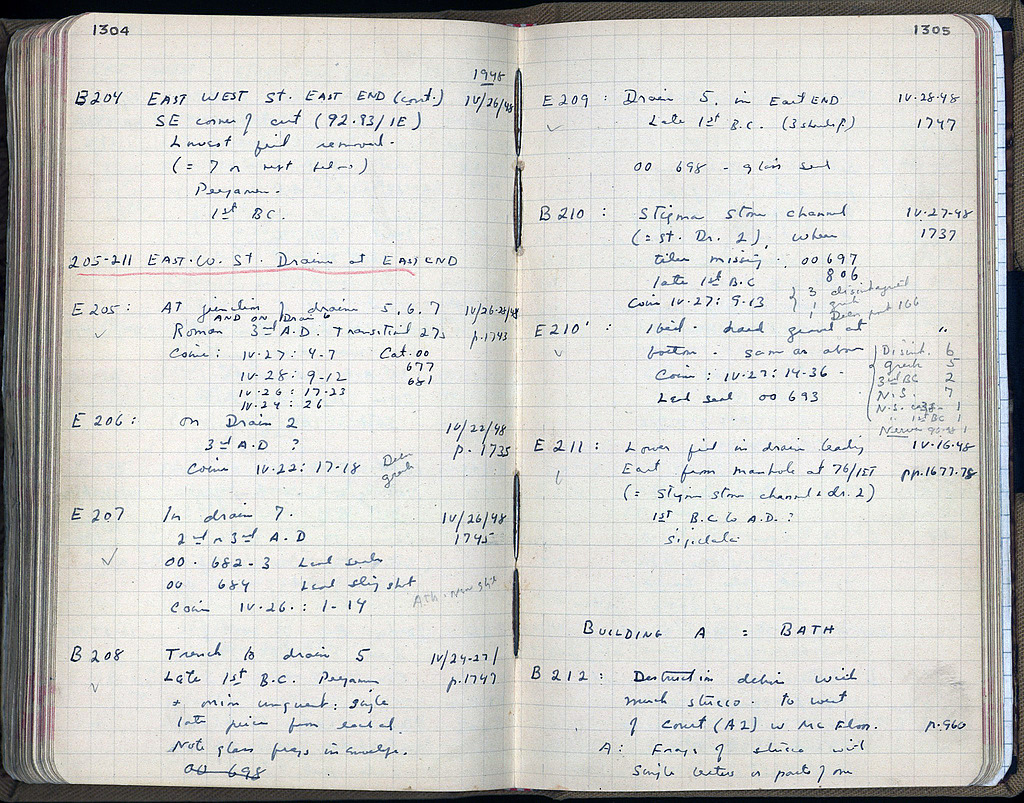 1304
1948
B 204 EAST WEST St. EAST END (cont.) IV/26/48
SE corner of cut (92.93/1E)
Lowest fill removed.
(= 7
Pergamene.
1st BC.
205-211 EAST-W. St. Drain at EAST END
E 205: AT junction drains 5, 6, 7
AND ON Drain 6
Roman 3rd A.D. Transitional 27s p.1743
Coins: IV.27: 4-7 Cat. 00
677
IV.28: 9-12 681
IV.26: 17-23
IV.24: 26
E 206: on Drain 2 IV/22/48
3rd A.D ? p. 1735
Coins IV.22: 17-18
E 207 In drain 7. IV/26/48
2nd or 3rd A.D 1745
00. 682-3 Lead seals
00 684 Lead sling shot
Coin IV.26.: 1-14
B 208 Trench B drain 5 IV/24-27/
Late 1st B.C. Pergamene p.1747
+ unguent: single
late piece from
Note glass frags in envelope.
00 698
1305
E 209: Drain 5, in East END IV.28.48
Late 1st B.C. (3 sherds) 1747
00 698 - glass seal
B 210: Stigma stone channel IV.27.48
(= St. Dr. 2), where 1737
tiles missing. 00 697
late 1st B.C 806
Coin IV.27: 9-13 3 disintegrated
1 greek
1
E 210': Ibid. hard gravel at "
bottom. same as above Disint. 6
greek 5
Coin: IV.27: 14-36 3rd BC 2
N.S. 7
Lead seal 00 693
1st BC 1
Nerva 96-98 1
E 211: Lower fill in drain leading IV.16.48
East from manhole at 76/1ET pp.1677-78
(= Stigma stone channel & dr. 2)
1st B.C to A.D. ?
Sigillata
BUILDING A = BATH
B 212: Destruction debris with
much stucco. to west
of Court (A2) w Mc Floor. p.960
A: Frags of stucco with
single letters or parts of one